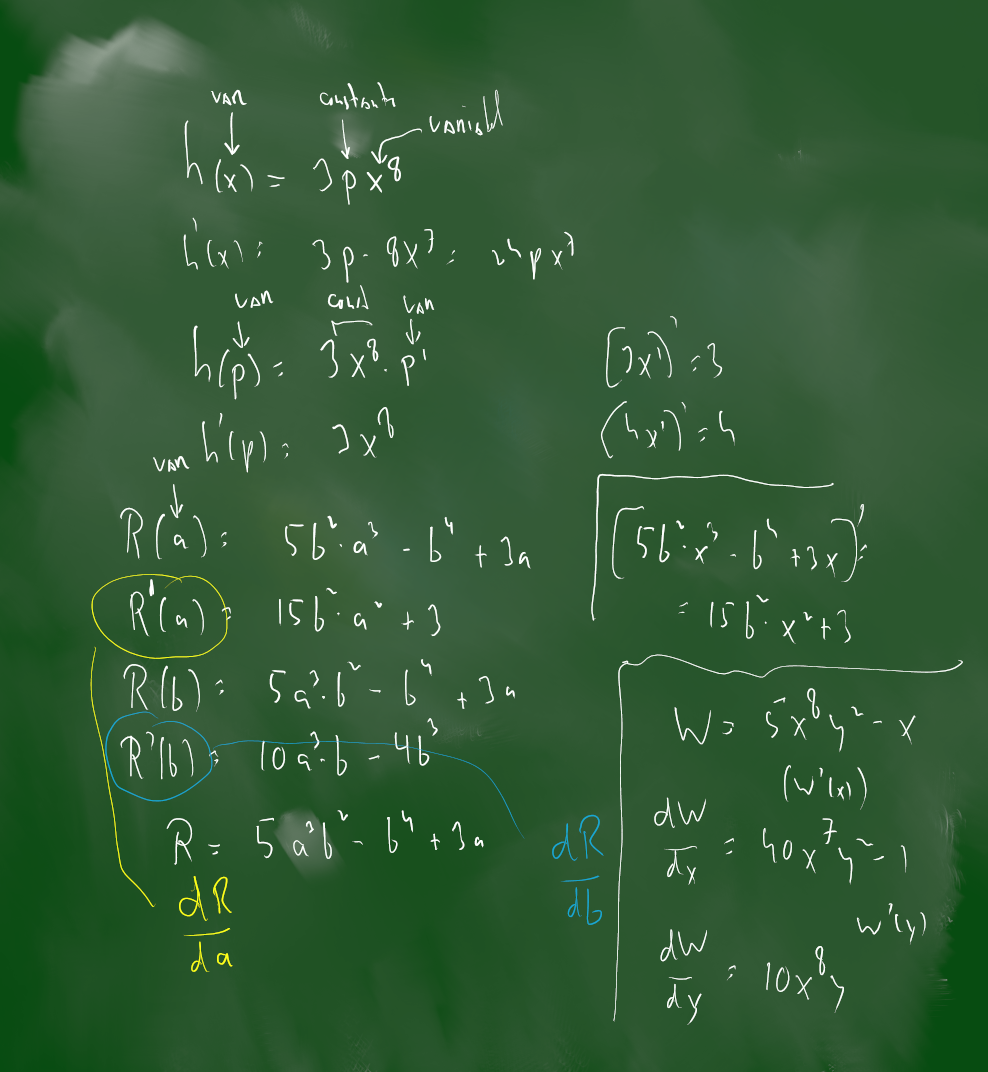 VAR constante variabel
h(x) = 3px⁸
h'(x) = 3p · 8x⁷ = 24px⁷
VAR const VAR
h(p) = 3x⁸ · p¹
h'(p) = 3x⁸
VAR
R(a) = 5b² · a³ - b⁴ + 3a
R'(a) = 15b² · a² + 3
R(b) = 5a³ · b² - b⁴ + 3a
R'(b) = 10a³ · b - 4b³
R = 5a³b² - b⁴ + 3a
dR/da
dR/db
(3x¹)' = 3
(4x¹)' = 4
(5b² · x³ - b⁴ + 3x)' =
= 15b² · x² + 3
W = 5x⁸y² - x
(W'(x))
dW/dx = 40x⁷y² - 1
W'(y)
dW/dy = 10x⁸y